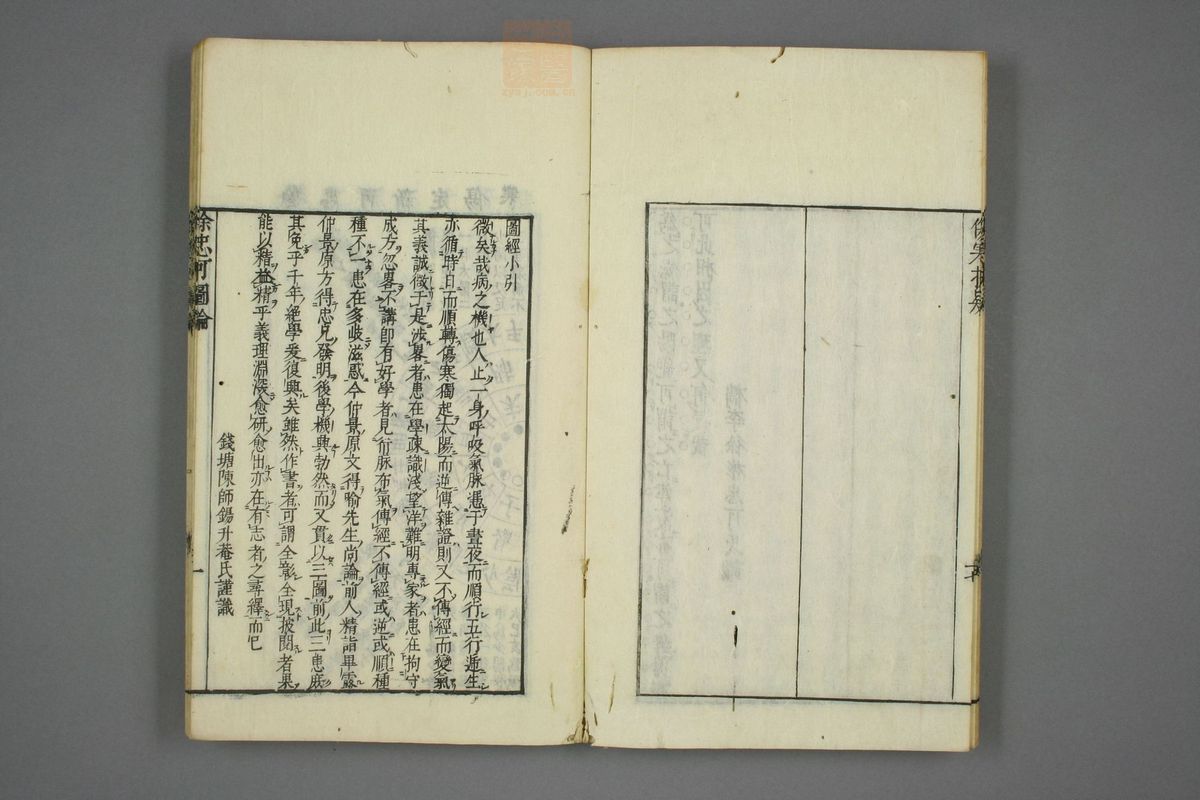 圖經小引
微矣哉病之機也人止一身呼吸氣脉憑于晝夜而順行五行遞生
亦循時日而順轉傷寒獨起太陽而逆傳雜證則又不傳經而變氣
其義誠微于是涉畧者患在學疎識淺望洋難明專家者患在拘守
成方忽畧不講即有好學者見衍脉布氣傳經不傳經或逆或順種
種不一患在多歧滋惑今仲景原文得喻先生尚論前人精詣畢露
仲景原方得忠兄發明後學機興勃然而又貫以三圖前此三患庶
其免乎千年絕學爰復興矣雖然作書者可謂全彰全現披閱者果
能以精益精乎義理淵深愈研愈出亦在有志者之尋繹而巳
錢塘陳師錫升菴氏謹識
徐忠可圖論
一
zysj.com.cn